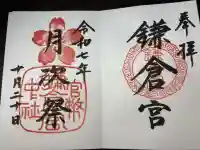 奉拝
鎌倉宮
令和七年
月次祭
十月二十日
官幣
中社